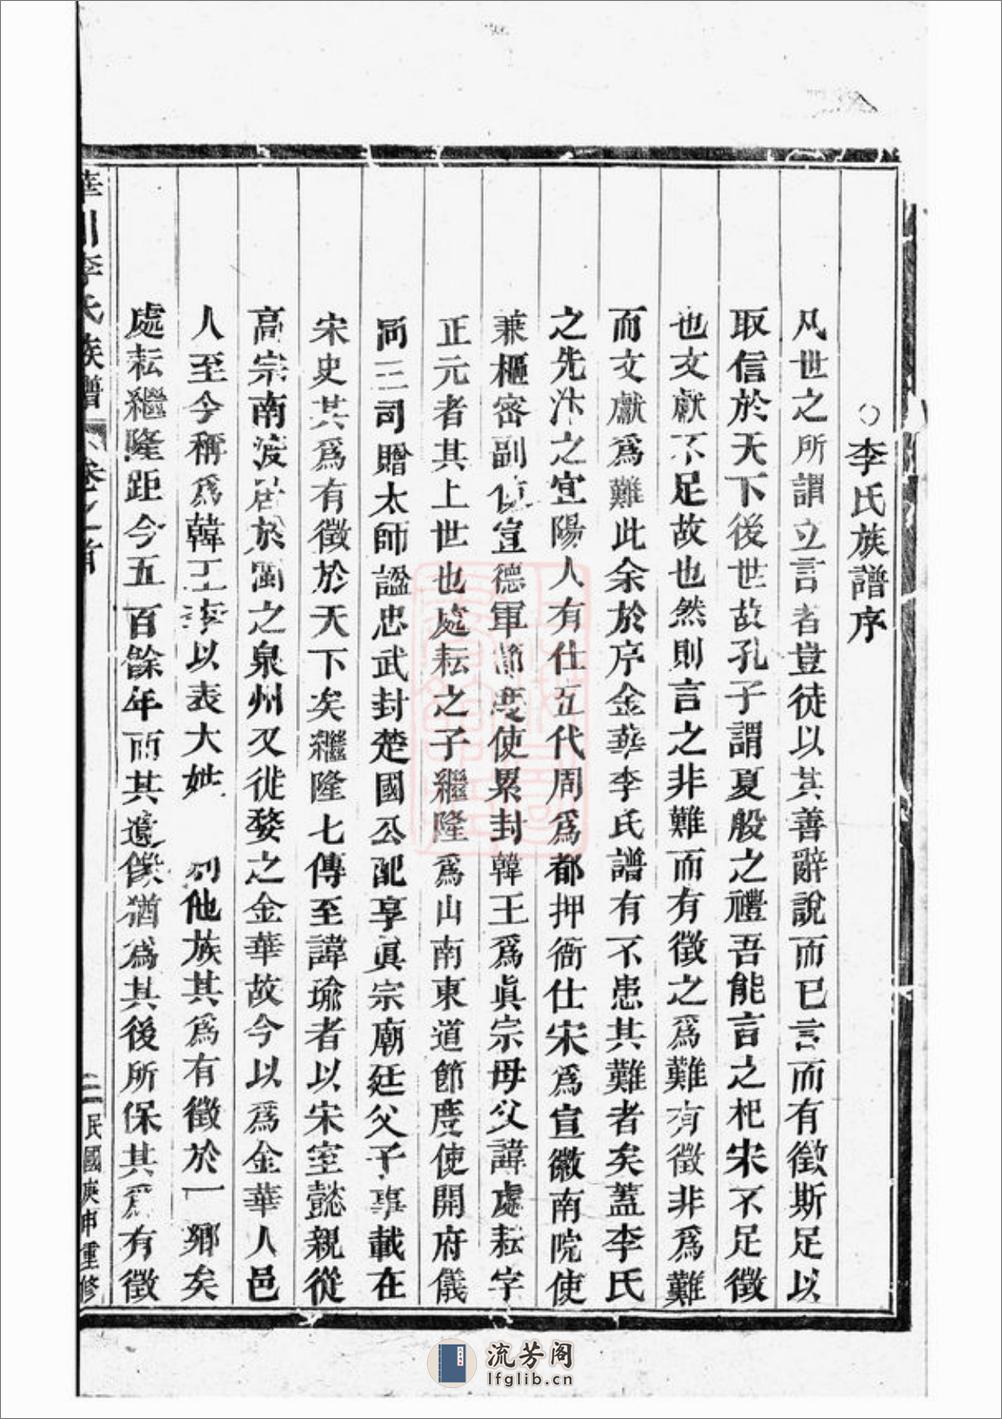 ○李氏族譜序
凡世之所謂立言者豈徒以其善辭說而已言而有徵斯足以
取信於天下後世故孔子謂夏殷之禮吾能言之杞宋不足徵
也文獻不足故也然則言之非難而有徵之爲難有徵非爲難
而文獻爲難此余於序金華李氏譜有不患其難者矣蓋李氏
之先汴之宜陽人有仕五代周爲都押衙仕宋爲宣徽南院使
兼樞密副使宣德軍節度使累封韓王爲眞宗母父諱處耘字
正元者其上世也處耘之子繼隆爲山南東道節度使開府儀
同三司贈太師謚忠武封楚國公配享眞宗廟廷父子事載在
宋史其爲有徵於天下矣繼隆七傳至諱瑜者以宋室懿親從
高宗南渡居於閩之泉州又徙婺之金華故今以爲金華人邑
人至今稱爲韓王李以表大姓 別他族其爲有徵於一鄉矣
處耘繼隆距今五百餘年而其遺像猶爲其後所保其爲有徵
華川李氏族譜 卷之首 二 民國庚申重修
流芳阁
lfglib.cn